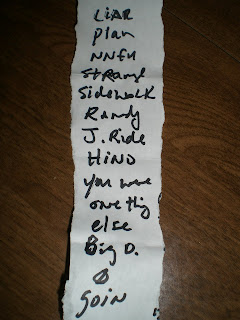 LiAR
plan
NNFN
STRANGE
SideWALK
Randy
J. Ride
HIND
you were
one thing
else
Big D.
GOIN